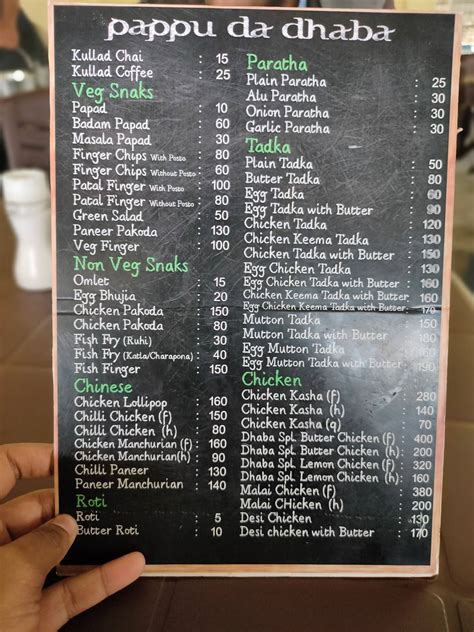 pappu da dhaba
Kullad Chai : 15
Kullad Coffee : 25
Veg Snaks
Papad : 10
Badam Papad : 60
Masala Papad : 30
Finger Chips With Posto : 80
Finger Chips Without Posto : 60
Patal Finger With Posto : 100
Patal Finger Without Posto : 80
Green Salad : 50
Paneer Pakoda : 130
Veg Finger : 100
Non Veg Snaks
Omlet : 15
Egg Bhujia : 20
Chicken Pakoda : 150
Chicken Pakoda : 80
Fish Fry (Ruhi) : 30
Fish Fry (Katla/Charapona) : 40
Fish Finger : 150
Chinese
Chicken Lollipop : 160
Chilli Chicken (f) : 150
Chilli Chicken (h) : 80
Chicken Manchurian (f) : 160
Chicken Manchurian(h) : 90
Chilli Paneer : 130
Paneer Manchurian : 140
Roti
Roti : 5
Butter Roti : 10
Paratha
Plain Paratha : 25
Alu Paratha : 30
Onion Paratha : 30
Garlic Paratha : 30
Tadka
Plain Tadka : 50
Butter Tadka : 80
Egg Tadka : 60
Egg Tadka with Butter : 90
Chicken Tadka : 120
Chicken Keema Tadka : 130
Chicken Tadka with Butter : 150
Egg Chicken Tadka : 130
Egg Chicken Tadka with Butter : 160
Chicken Keema Tadka with Butter : 160
Egg Chicken Keema Tadka with Butter : 170
Mutton Tadka : 150
Mutton Tadka : 180
Egg Mutton Tadka : 160
Egg Mutton Tadka with Butter : 190
Chicken
Chicken Kasha (f) : 280
Chicken Kasha (h) : 140
Chicken Kasha (q) : 70
Dhaba Spl. Butter Chicken (f) : 400
Dhaba Spl. Butter Chicken (h) : 200
Dhaba Spl. Lemon Chicken (f) : 320
Dhaba Spl. Lemon Chicken (h) : 160
Malai CHicken (f) : 380
Malai CHicken (h) : 200
Desi Chicken : 130
Desi chicken with Butter : 170